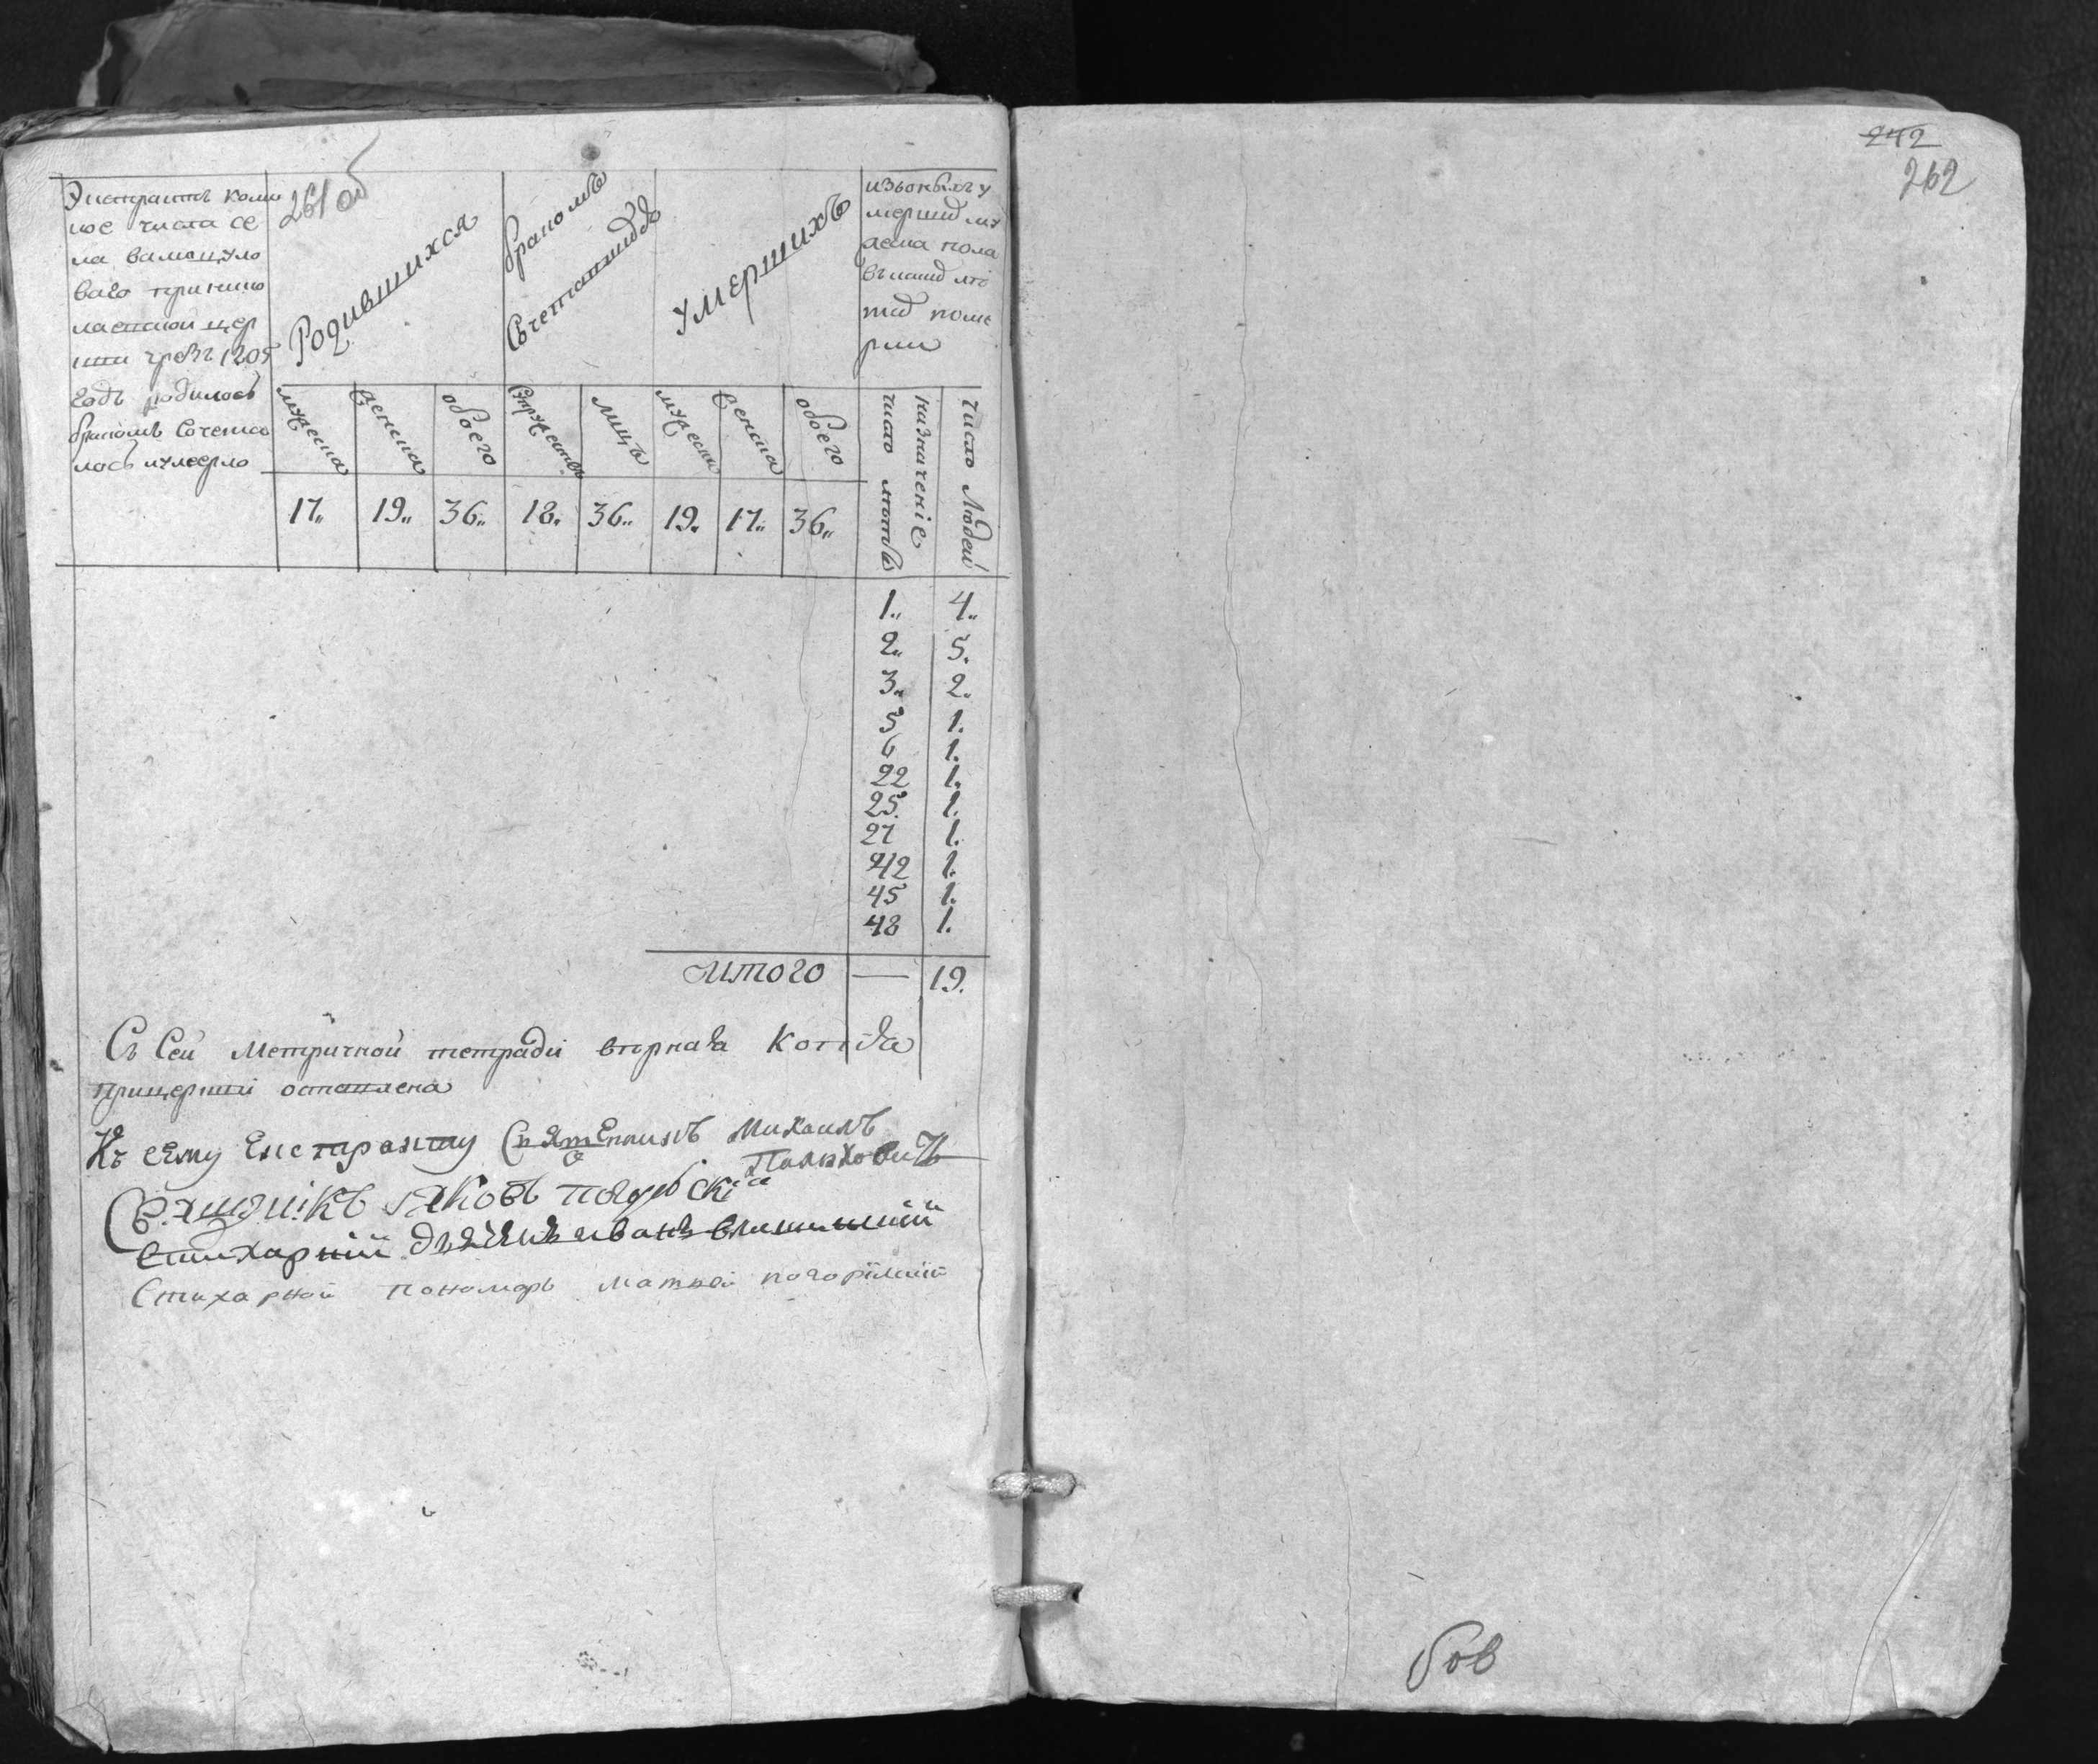 261 об
Экстрактъ коли
кое числа се
ла
ваго
церк
кви чрезъ 1805
годъ родилось
бракомъ сочета
лось и умерло
Родившихся
бракомъ
Сочетаншихся
умершихъ
изъ оныхъ у
мершихъ му
жеска пола
въ какихъ лѣ
тахъ поме
рли
мужеска
женска
обоего
Супружествъ
лицъ
мужеска
женска
обоего
число лѣтъ
назначеніе
число людей
17„ 19„ 36„ 18„ 36„ 19„ 17„ 36„
1„ 4„
2„ 5.
3„ 2„
5 1.
6 1.
22 1.
25. 1.
27 1.
42 1.
45 1.
48 1.
Итого — 19.
Съ Сей Метричной тетради вѣрная Копія
прицеркви оставлена
Къ сему Екстракту Священникъ Михаилъ
Священікъ Яковъ
Стихарний дьячекъ иванъ
Стихарной пономарь Матвей
242
262